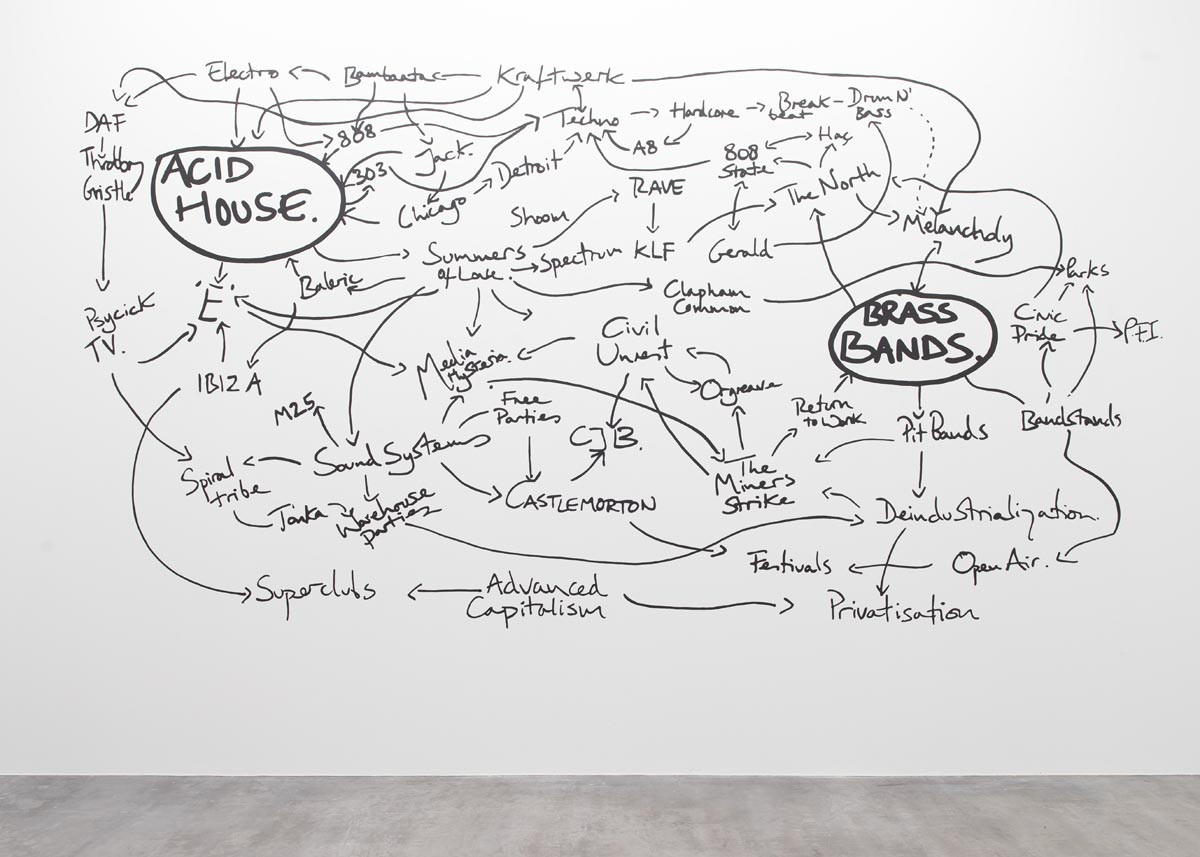 Electro
Bambaataa
Kraftwerk
DAF
Throbbing
Gristle
ACID
HOUSE.
808
303
Jack.
Chicago
Detroit
Techno
Hardcore
Break-
beat
Drum N'
Bass
A8
808
State
Haç
RAVE
Shoom
The North
Summers
of Love.
Spectrum
KLF
Gerald
Melancholy
Baleric
'E'.
Clapham
Common
Parks
BRASS
BANDS.
Civic
Pride
P.F.I.
Psycick
TV.
IBIZA
Civil
Unrest
Media
Hysteria.
Orgreave
M25
Free
Parties
CJB.
Return
to Work
Pit Bands
Bandstands
Sound Systems
Spiral
tribe
The
Miners
Strike
CASTLEMORTON
Tonka
Warehouse
parties
Deindustrialization.
Festivals
Open Air.
Superclubs
Advanced
Capitalism
Privatisation